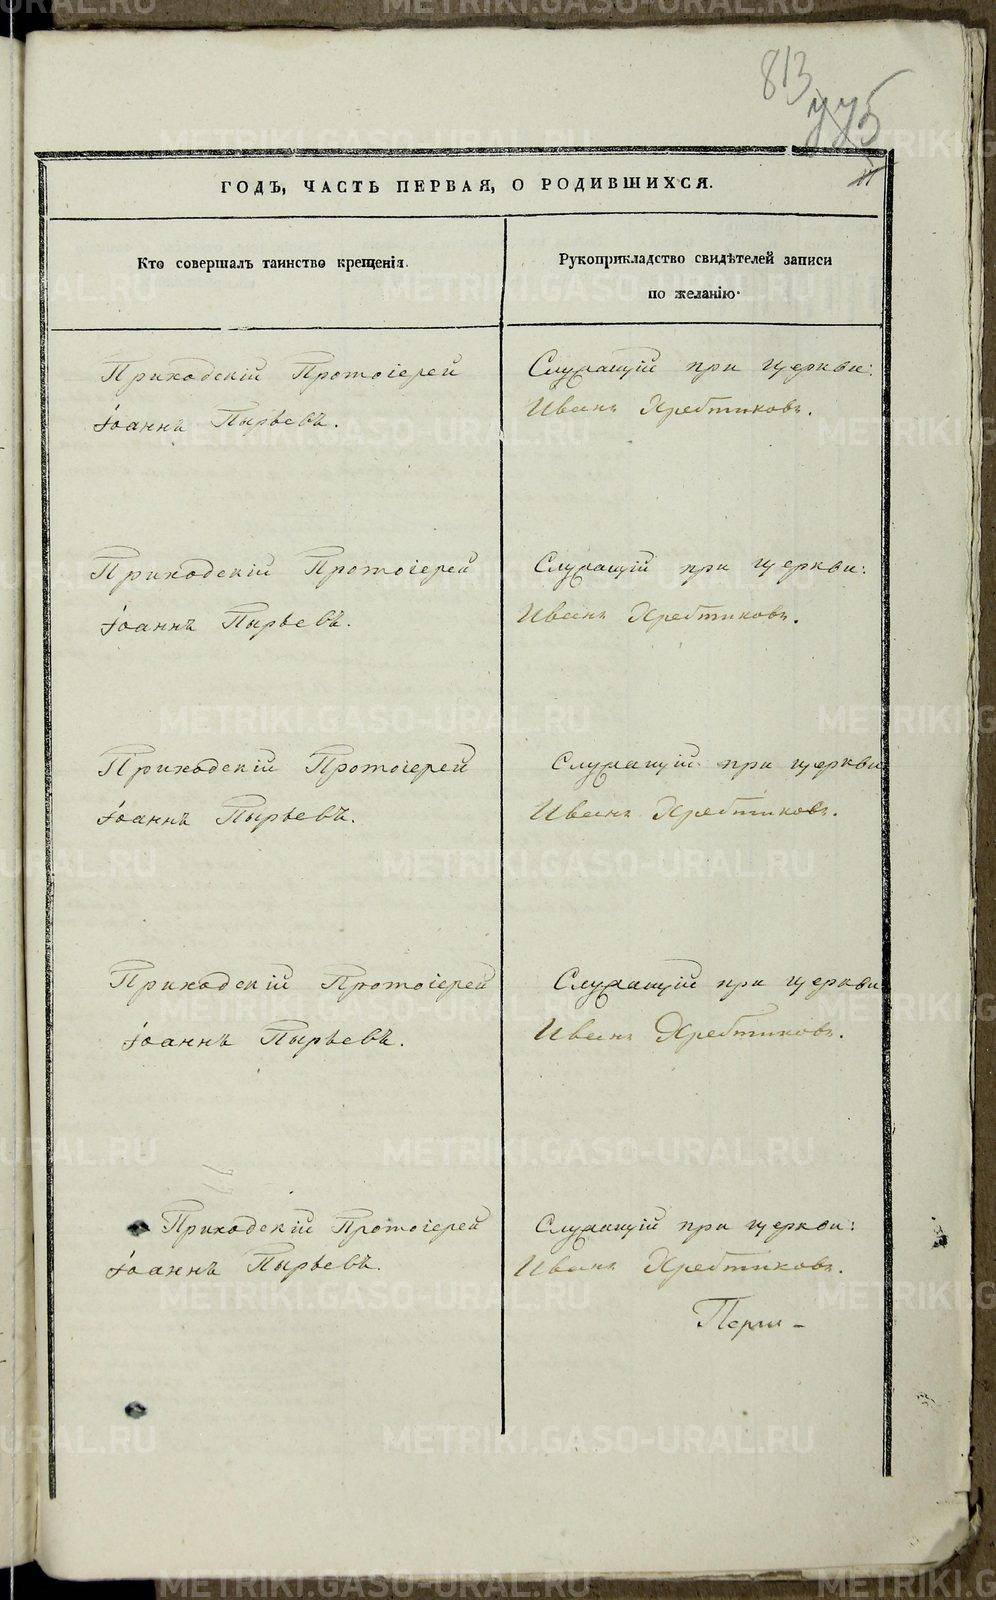 813
775
ГОДЪ, ЧАСТЬ ПЕРВАЯ, О РОДИВШИХСЯ.
Кто совершалъ таинство крещенія.
Рукоприкладство свидѣтелей записи
по желанію.
Приходскій Протоіерей
Іоаннъ Пырьевъ.
Служащій при церкви:
Иванъ Хребтиковъ.
Приходскій Протоіерей
Іоаннъ Пырьевъ.
Служащій при церкви:
Иванъ Хребтиковъ.
Приходскій Протоіерей
Іоаннъ Пырьевъ.
Служащій при церкви
Иванъ Хребтиковъ.
Приходскій Протоіерей
Іоаннъ Пырьевъ.
Служащій при церкви
Иванъ Хребтиковъ.
Приходскій Протоіерей
Іоаннъ Пырьевъ.
Служащій при церкви:
Иванъ Хребтиковъ.
METRIKI.GASO-URAL.RU